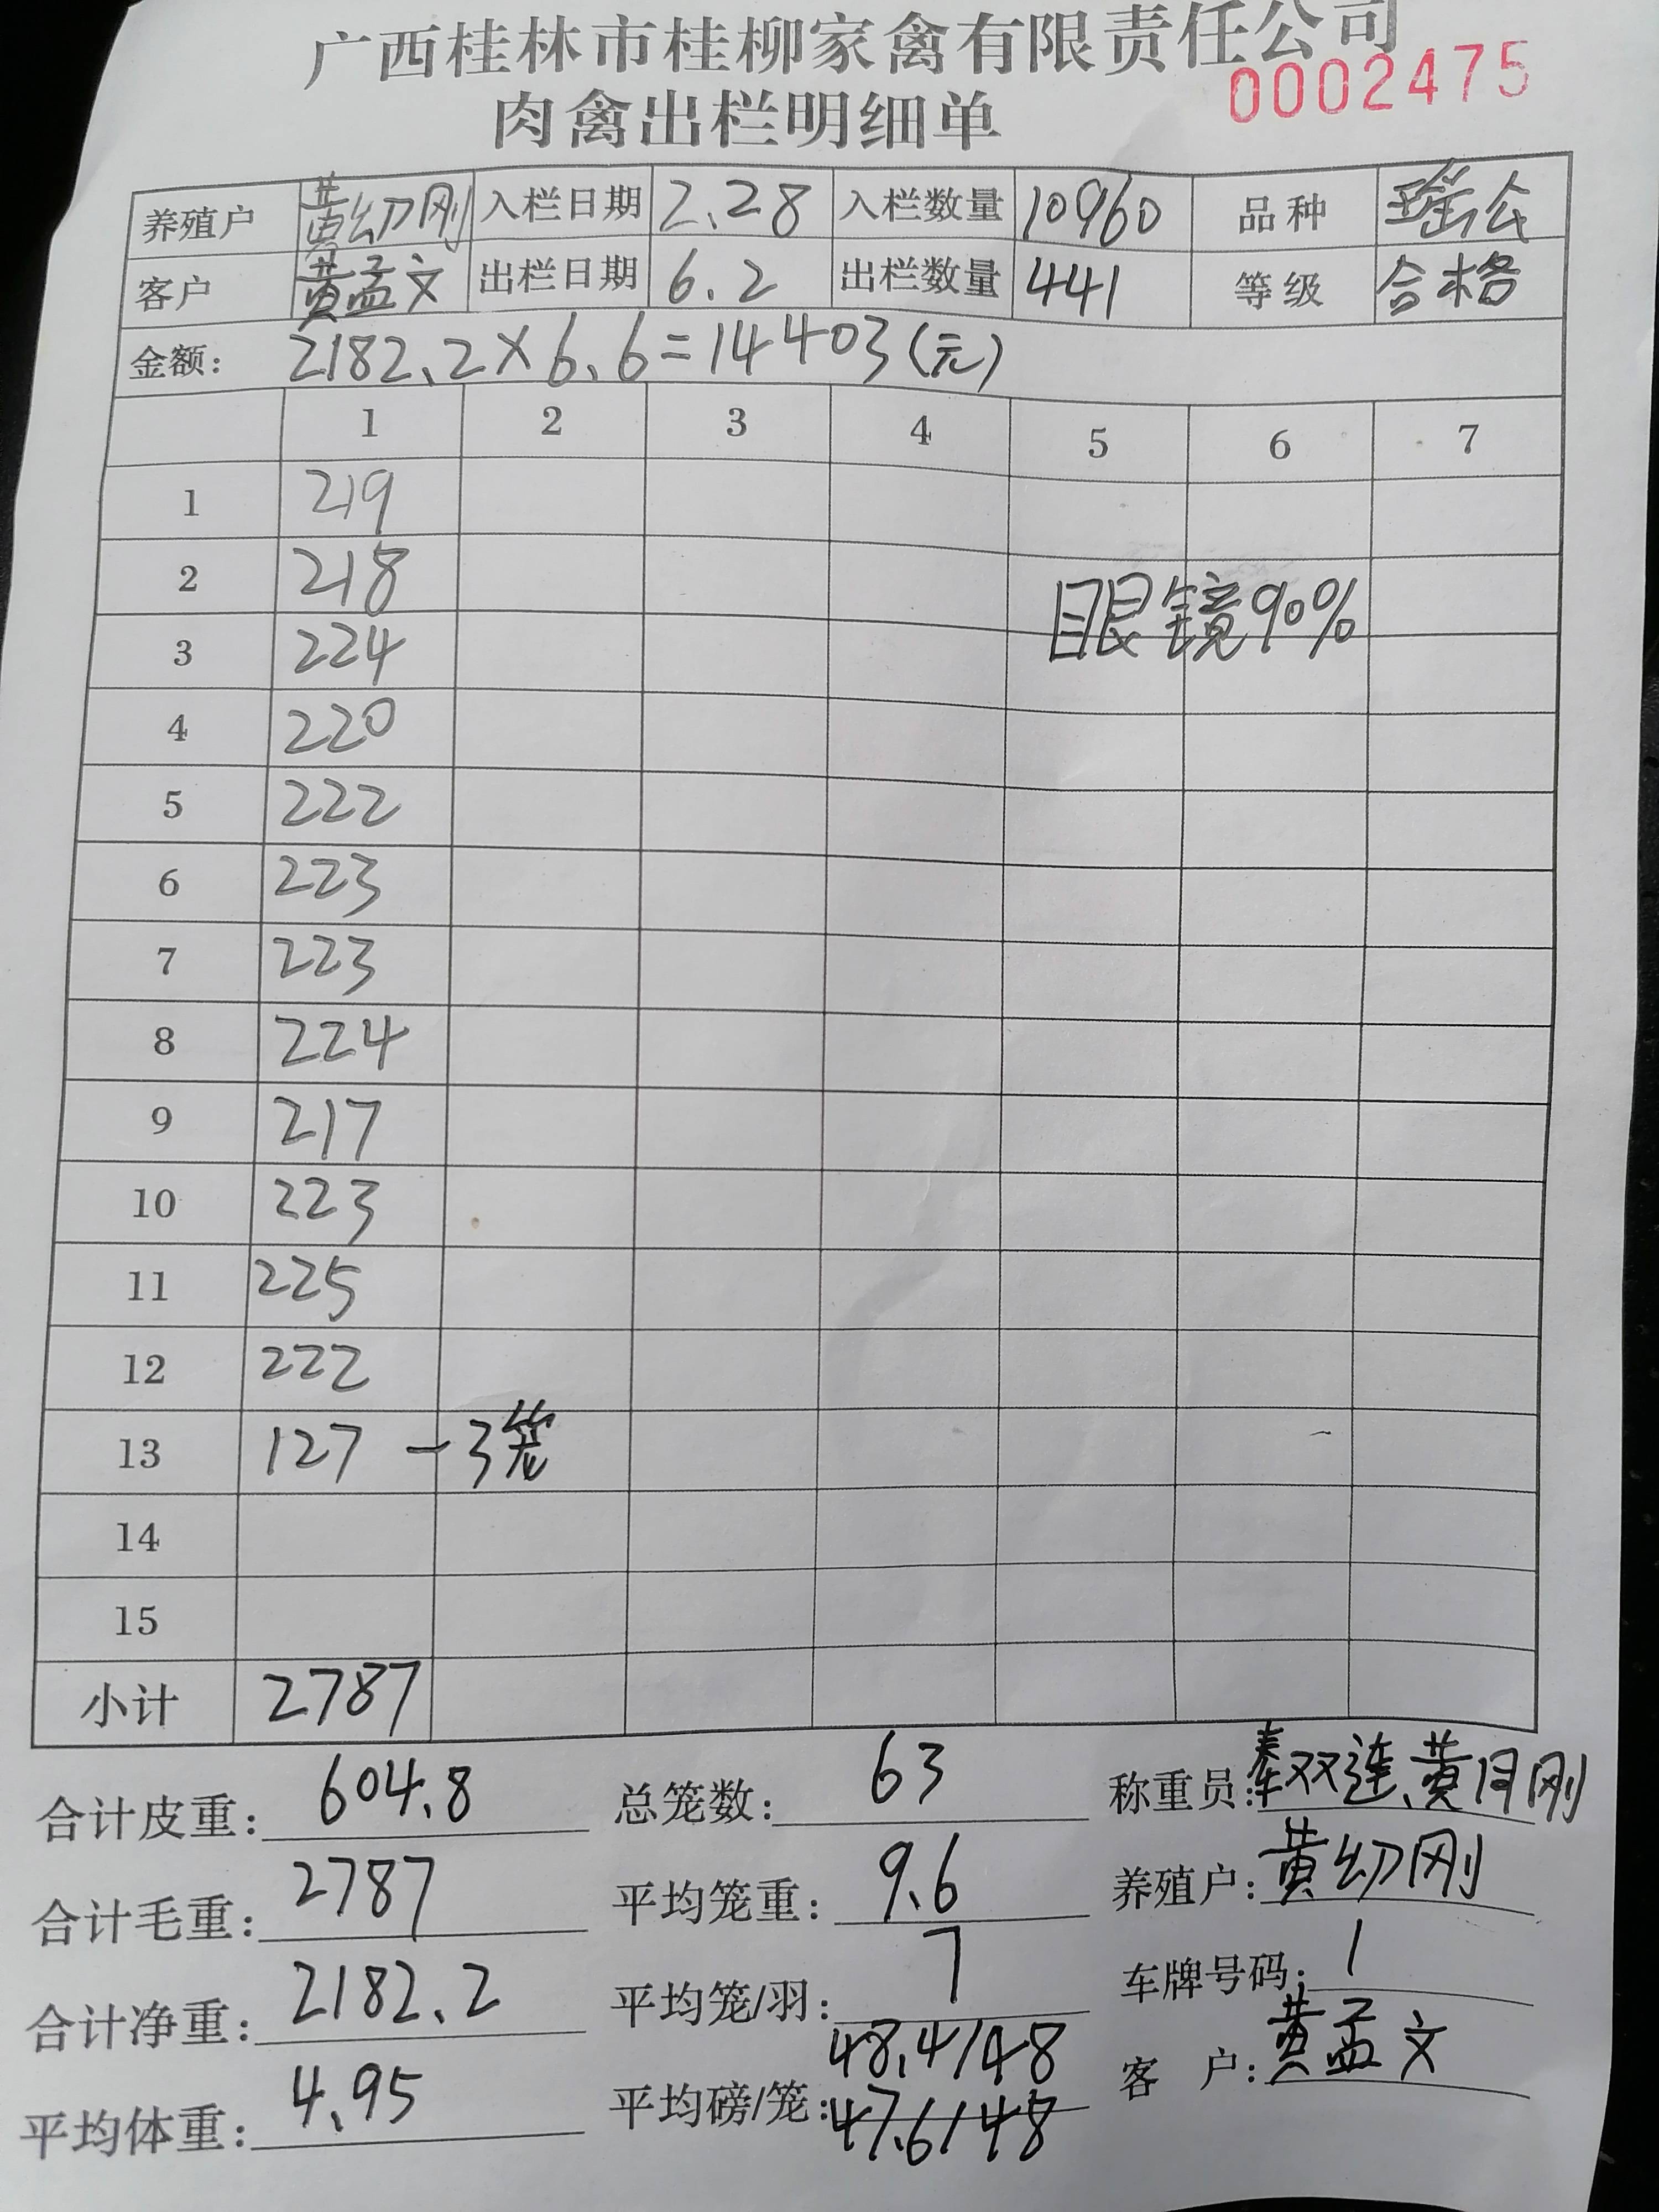 广西桂林市桂柳家禽有限责任公司
0002475
肉禽出栏明细单
养殖户 黄幼刚 入栏日期 2.28 入栏数量 10960 品种 瑶公
客户 黄孟文 出栏日期 6.2 出栏数量 441 等级 合格
金额: 2182.2×6.6=14403(元)
1 2 3 4 5 6 7
1 219
2 218
眼镜90%
3 224
4 220
5 222
6 223
7 223
8 224
9 217
10 223
11 225
12 222
13 127 -3笼
14
15
小计 2787
合计皮重: 604.8 总笼数: 63 称重员: 秦双连、黄月刚
合计毛重: 2787 平均笼重: 9.6 养殖户: 黄幼刚
合计净重: 2182.2 平均笼/羽: 7 车牌号码: 1
平均体重: 4.95 平均磅/笼: 48.4/48 客户: 黄孟文
47.6/48